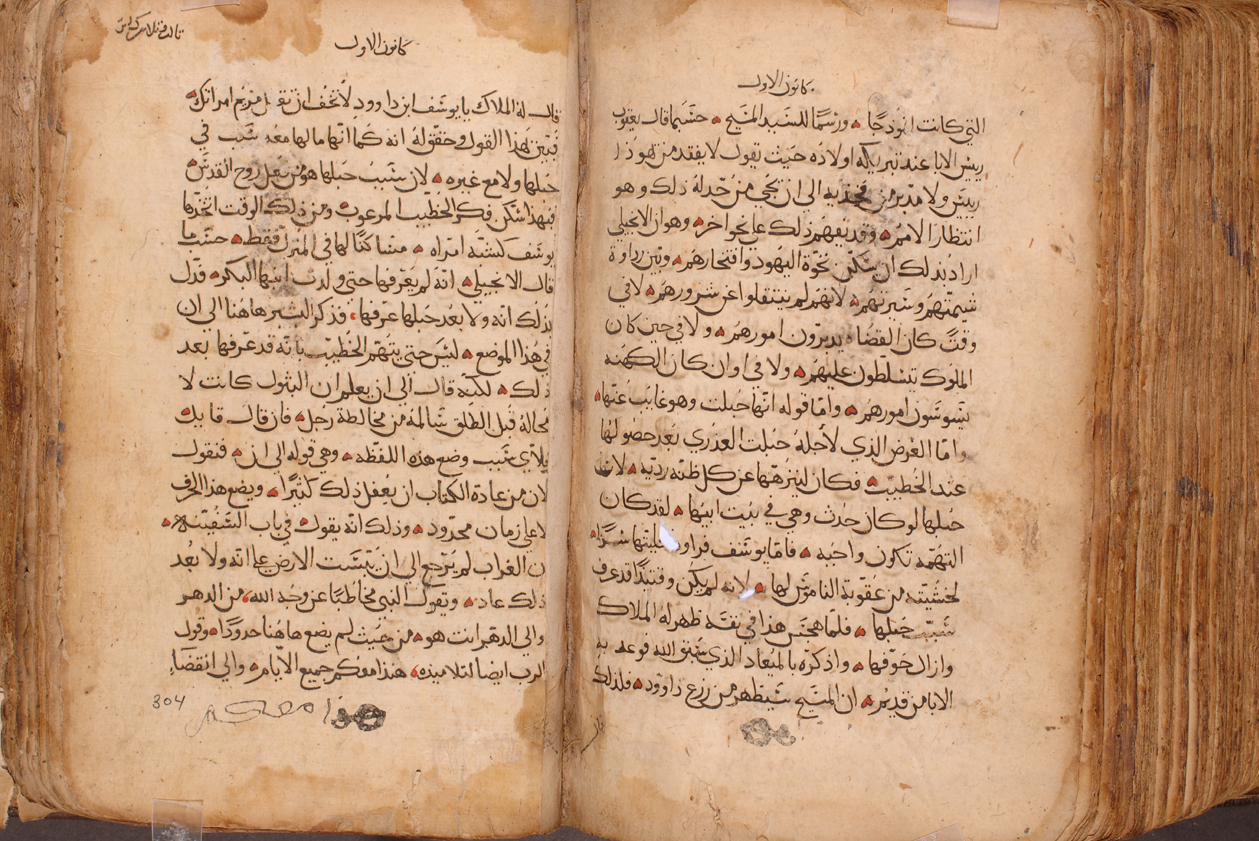 كانون الاول
التي كانت انموذجًا ورسمًا للسيد المسيح حسبما قال يعقوب
ريس الابا عند تبريكه اولاده حيث يقول لا يفقد من هوذا
رييس ولا مدبر من فخذيه الى ان يجى من له ذلك وهو
انتظار الامم وقد يفهم ذلك على نحو اخر وهو ان الانجيلي
اراد بذلك ان يسكن نخوة اليهود وافتخارهم ويبين رداوة
شيمتهم وشرتهم لانهم لم ينتقلوا عن شرورهم لا في
وقت كان القضاه يدبرون امورهم ولا في حين كان
الملوك يتسلطون عليهم ولا في اوان كان الكهنه
يسوسون امورهم واما قوله انها حبلت وهو غايب عنها
واما الغرض الذي لاجله حبلت العذري بعد حصولها
عند الخطيب فكان لينزهها عن كل ظنه رديه لان
حبلها لو كان حدث وهي في بيت ابيها لقد كان
التهمه تكون واجبه فاما يوسف فراود تخليتها سرًا
لخشيته من عقوبة الناموس لها لانه لم يكن وقتيذًا قد عرف
سبب حبلها فلما هجس هذا في نفسه ظهر له الملاك
وازال خوفها واذكره بالميعاد الذي سبق الله فوعد به
الابا من قديم ان المسيح سيظهر من زرع داوود فلذلك
كانون الاول
قال له الملاك يا يوسف ابن داوود لا تخف ان تقبل مريم امراتك
فبين بهذا القول وحقق له انه كما انها مالها معه سبب في
حبلها ولا مع غيره لان سبب حبلها هو من فعل روح القدس
فبهذا سكن فكر الخطيب المرعوب ومن ذلك الوقت اتخذها
يوسف كشبه امراه مساكنًا لها في المنزل فقط حسب ما
قال الانجيلي انه لم يعرفها حتى ولدت ابنها البكر فدل
بذلك انه ولا بعد حبلها عرفها فذكر البشير هاهنا الى ان
في هذا الموضع ليس حتى يتهم الخطيب بانه قد عرفها بعد
ذلك لكنه قال الى ان يعلم ان البتول كانت لا
محالة قبل الطلق سالمة من مخالطة رجل فان قال قايل
فلاي سبب وضع هذه اللفظه وهي قوله الى ان فنقول
لان من عادة الكتاب ان يفعل ذلك كثيرًا ويضع هذا الحرف
لا على زمان محدود وذلك انه يقول في باب السفينه
ن الغراب لم يرجع الى ان يبست الارض على انه ولا بعد
ذلك عاد ويقول النبي مخاطبًا عن وجه الله من الدهر
والى الدهر انت هو من حيث لم يضع هاهنا حدودًا وقول
الرب ايضا لتلاميذه هنذا معكم جميع الايام والى انقضآء
هوذا معكم
304